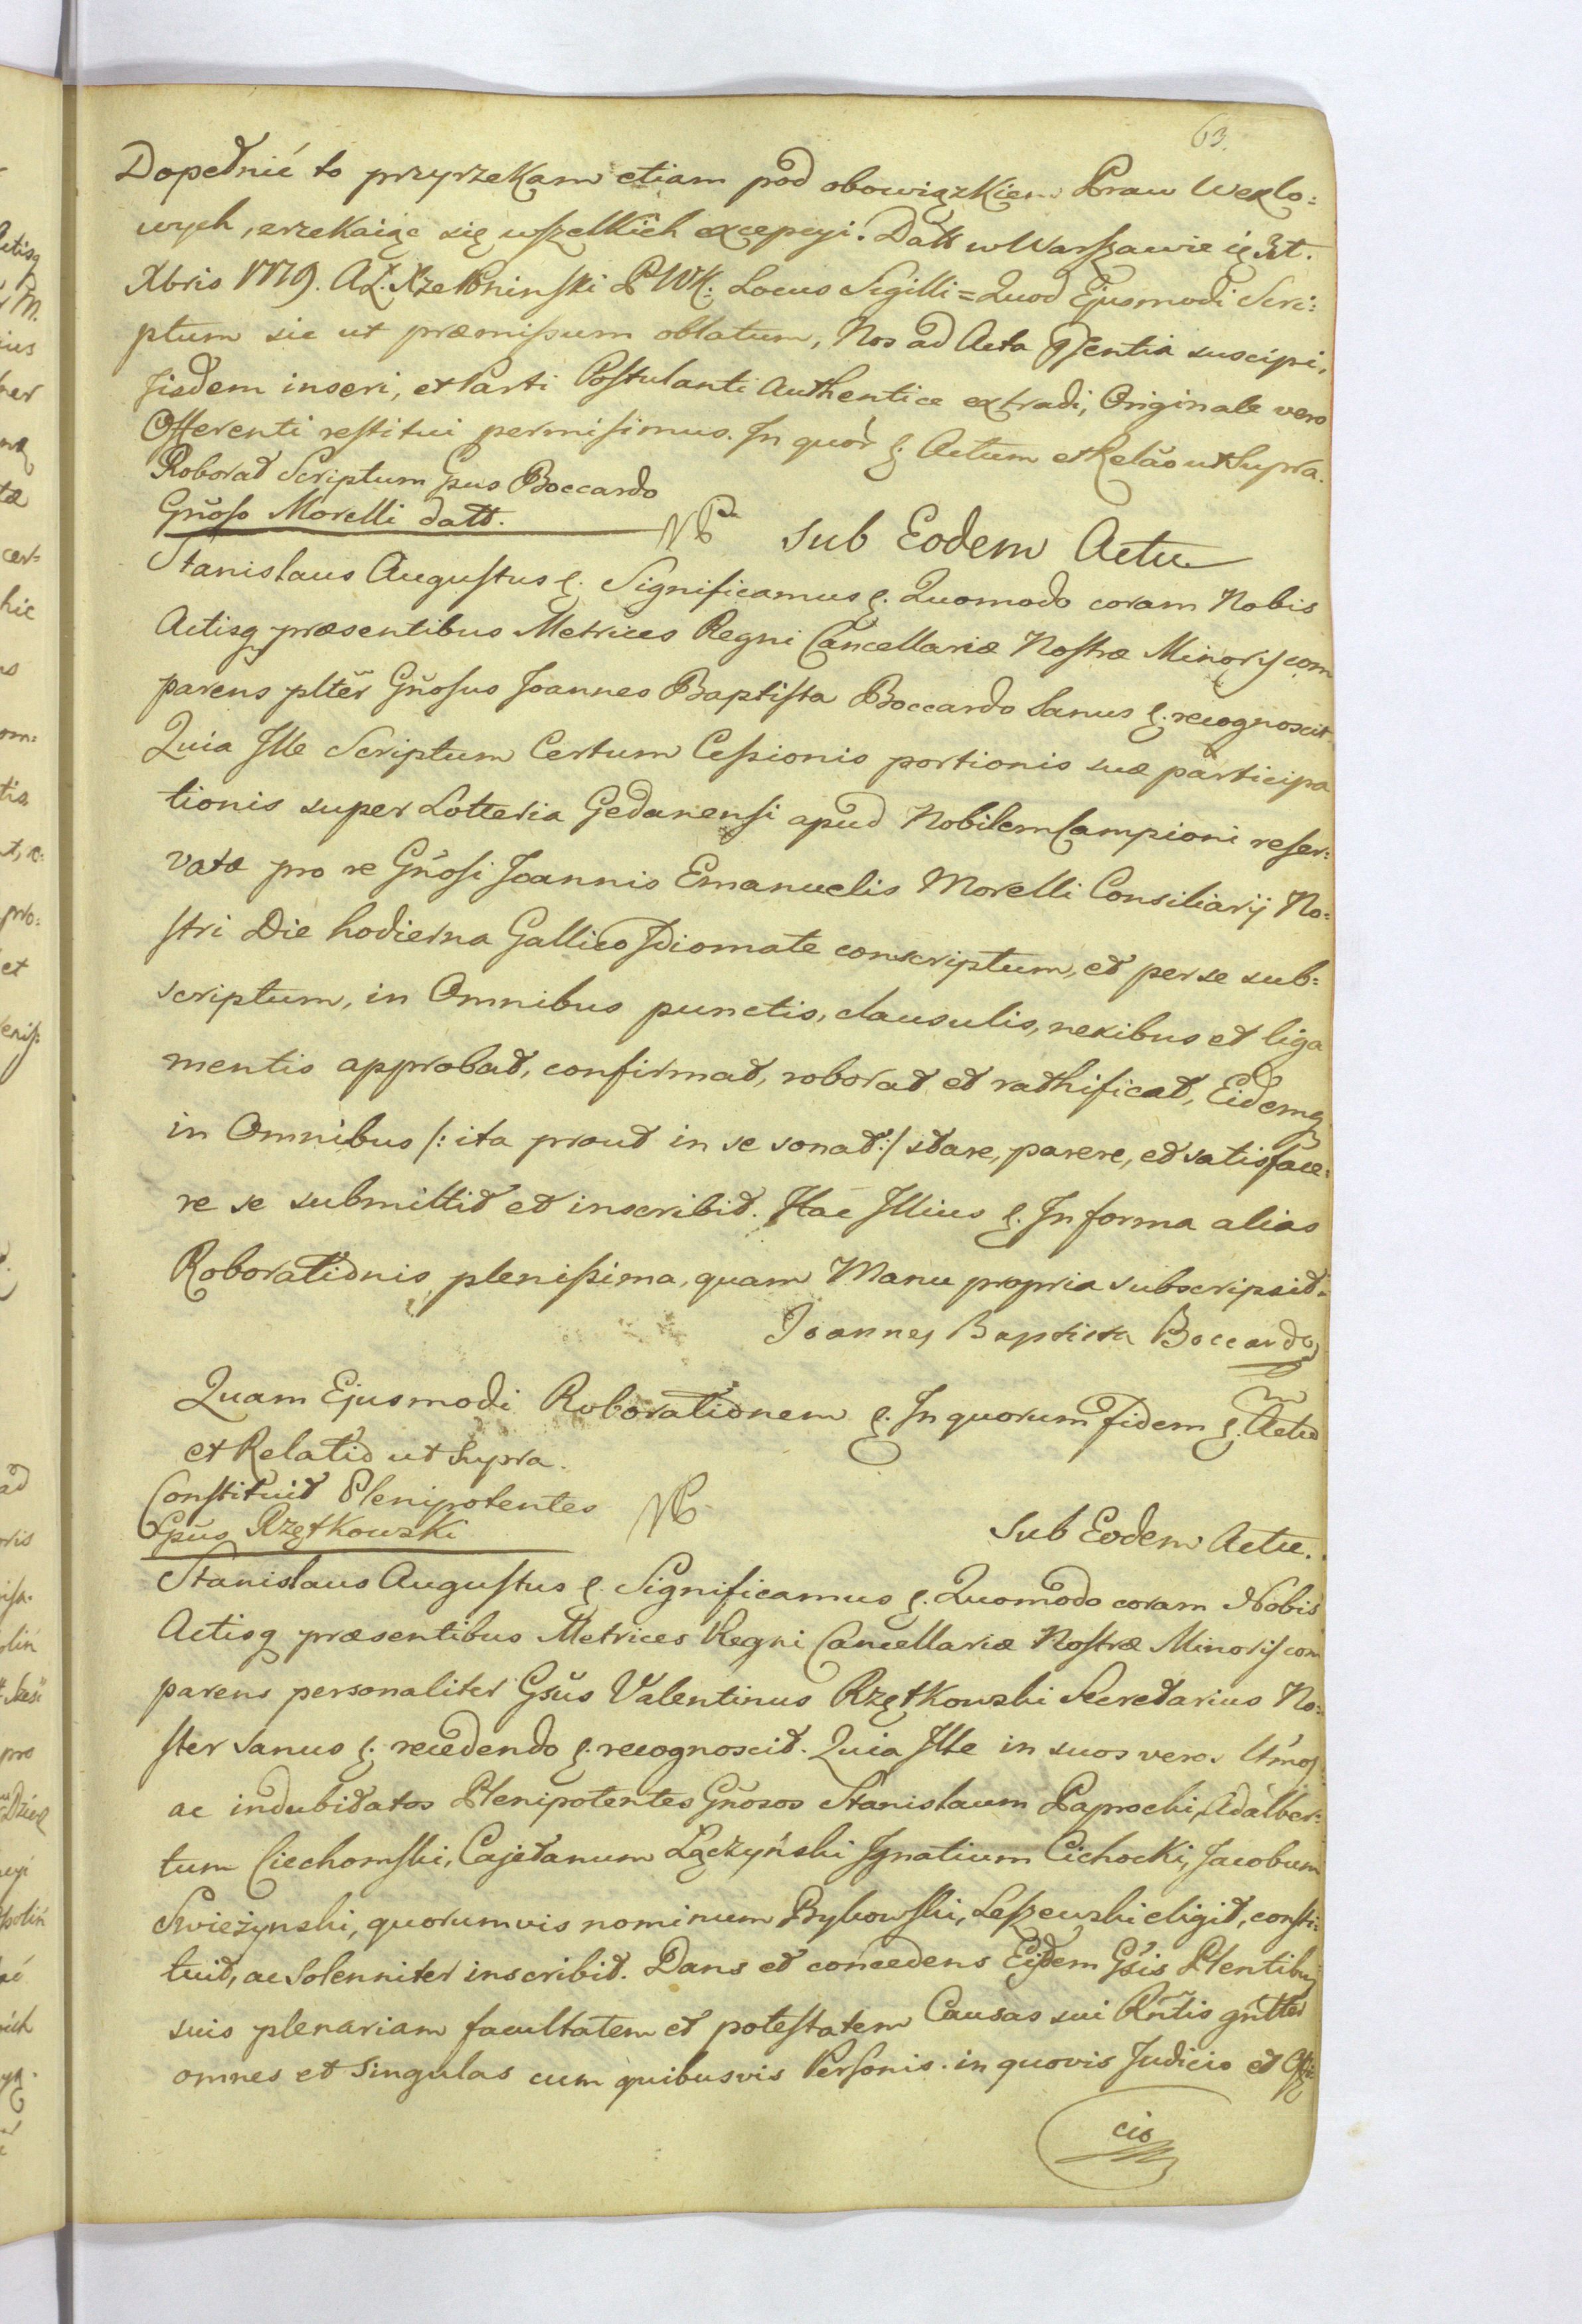 63.
Dopełnić to przyrzekam etiam pod obowiązkiem Praw Wexlo:
wych, zrzekaiąc się wszelkich excepcyi. Datt w Warszawie
Xbris 1779. AŁ. Xże Poninski PWK. Locus Sigilli = Quod Ejusmodi Scri:
ptum sic ut præmissum oblatum, Nos ad Acta pſentia suscipi,
Jisdem inseri, et Parti Postulanti Authentice extradi, Originale vero
Offerenti restitui permisimus. In quor̃ ꝛ. Actum et Relão ut Supra.
Roborat Scriptum Gsus Boccardo
Gñoso Morelli datt.
Sub Eodem Actu
Stanislaus Augustus ꝛ. Significamus ꝛ. Quomodo coram Nobis
Actisq præsentibus Metrices Regni Cancellariæ Nostræ Minoris com
parens pltẽr Gñosus Joannes Baptista Boccardo Sanus ꝛ. recognoscit
Quia Ille Scriptum Certum Cessionis portionis suæ participa
tionis super Lotteria Gedanensi apud Nobilem Campioni reser:
vatæ pro re Gñosi Joannis Emanuelis Morelli Consiliarij No:
stri Die hodierna Gallico Idiomate conscriptum, et per se sub:
scriptum, in Omnibus punctis, clausulis, nexibus et liga
mentis approbat, confirmat, roborat et rathificat, Eidemq
in Omnibus /: ita prout in se sonat :/ stare, parere, et satisface:
re se submittit et inscribit. Hac Illius ꝛ. In forma alias
Roborationis plenissima, quam Manu propria subscripsit.
Joannes Baptista Boccardo
Quam Ejusmodi Roborationem ꝛ. In quorum fidem ꝛ. Actũ
et Relatio ut Supra.
Constituit Plenipotentes
Gsus Rzętkowski
Sub Eodem Actu.
Stanislaus Augustus ꝛ. Significamus ꝛ. Quomodo coram Nobis
Actisq præsentibus Metrices Regni Cancellariæ Nostræ Minoris com
parens personaliter Gsũs Valentinus Rzętkowski Secretarius No:
ster Sanus ꝛ. recedendo ꝛ. recognoscit. Quia Ille in suos veros
ac indubitatos Plenipotentes Gñosos Stanislaum Paprocki, Adalber:
tum Ciechomski, Cajetanum Łączyński Ignatium Cichocki, Jacobum
Swieżynski, quorumvis nominum Bykowski, Leszewski eligit, consti:
tuit, ac Solenniter inscribit. Dans et concedens Eisdem Gsis Plentibus
suis plenariam facultatem et potestatem Causas sui Rñtis gñlter
omnes et Singulas cum quibusvis Personis in quovis Judicio et Offi:
cio